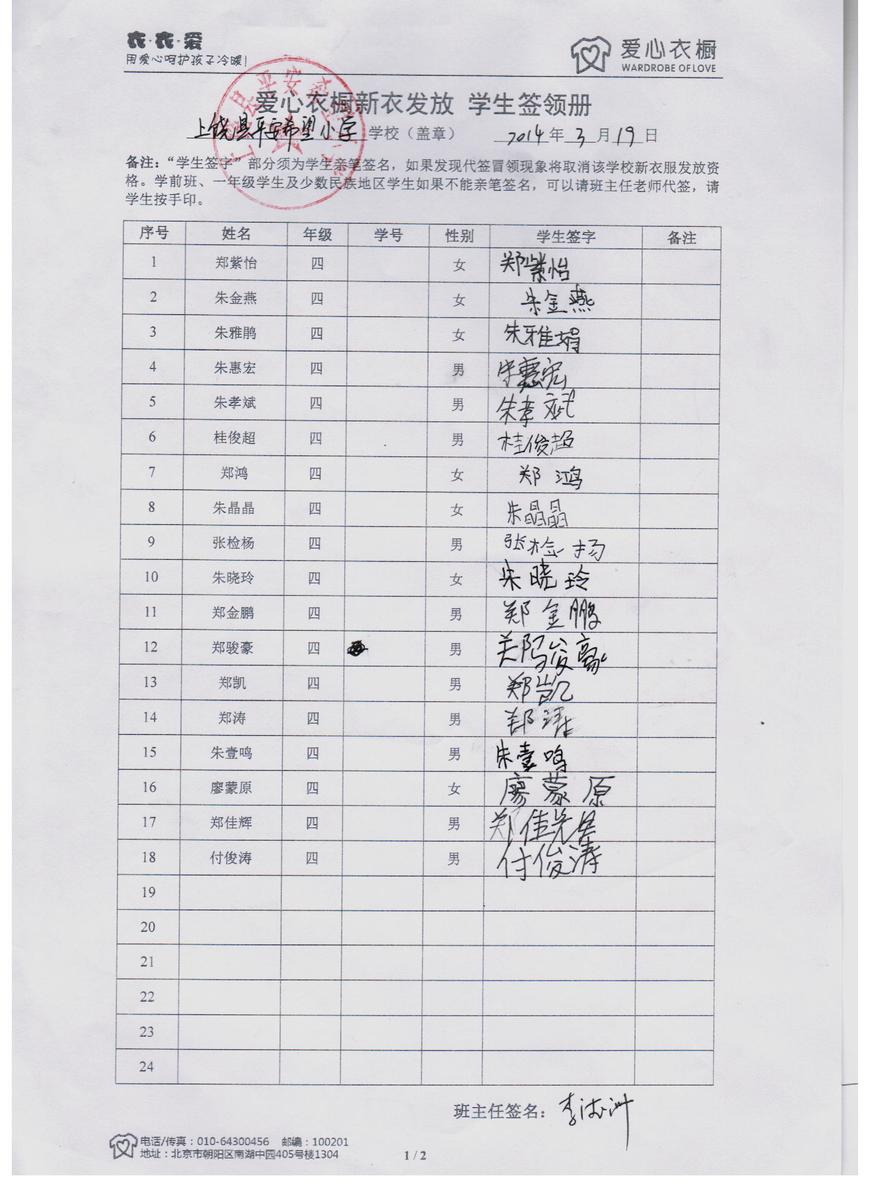 衣·衣·爱
用爱心呵护孩子冷暖!
爱心衣橱
WARDROBE OF LOVE
爱心衣橱新衣发放 学生签领册
上饶县平安希望小学 学校（盖章） 2014 年 3 月 19 日
备注：“学生签字”部分须为学生亲笔签名，如果发现代签冒领现象将取消该学校新衣服发放资
格。学前班、一年级学生及少数民族地区学生如果不能亲笔签名，可以请班主任老师代签，请
学生按手印。
序号 姓名 年级 学号 性别 学生签字 备注
1 郑紫怡 四 女 郑紫怡
2 朱金燕 四 女 朱金燕
3 朱雅鹃 四 女 朱雅娟
4 朱惠宏 四 男 朱惠宏
5 朱孝斌 四 男 朱孝斌
6 桂俊超 四 男 桂俊超
7 郑鸿 四 女 郑鸿
8 朱晶晶 四 女 朱晶晶
9 张检杨 四 男 张检杨
10 朱晓玲 四 女 朱晓玲
11 郑金鹏 四 男 郑金鹏
12 郑骏豪 四 男 郑骏豪
13 郑凯 四 男 郑凯
14 郑涛 四 男 郑涛
15 朱壹鸣 四 男 朱壹鸣
16 廖蒙原 四 女 廖蒙原
17 郑佳辉 四 男 郑佳辉
18 付俊涛 四 男 付俊涛
19
20
21
22
23
24
班主任签名：
电话/传真：010-64300456 邮编：100201
地址：北京市朝阳区南湖中园405号楼1304
1 / 2